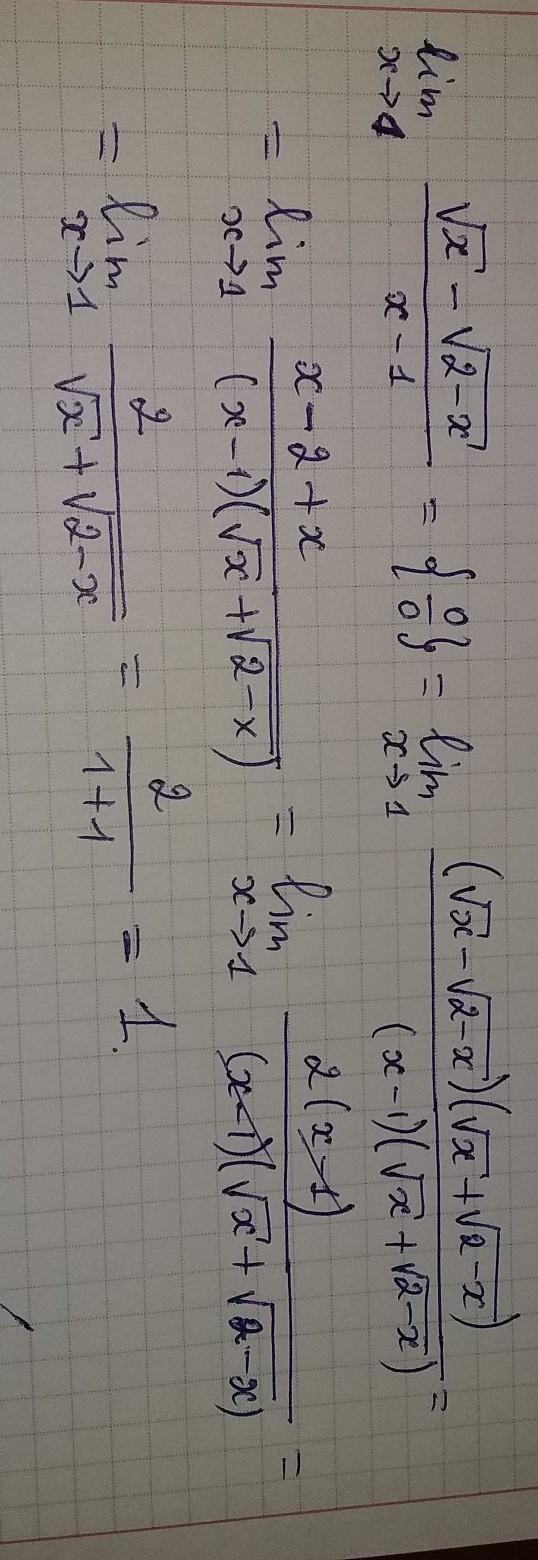 lim x→1 (√x − √(2−x)) / (x−1) = {0/0} = lim x→1 ((√x − √(2−x))(√x + √(2−x))) / ((x−1)(√x + √(2−x))) =
= lim x→1 (x − 2 + x) / ((x−1)(√x + √(2−x))) = lim x→1 (2(x−1)) / ((x−1)(√x + √(2−x))) =
= lim x→1 2 / (√x + √(2−x)) = 2 / (1+1) = 1.